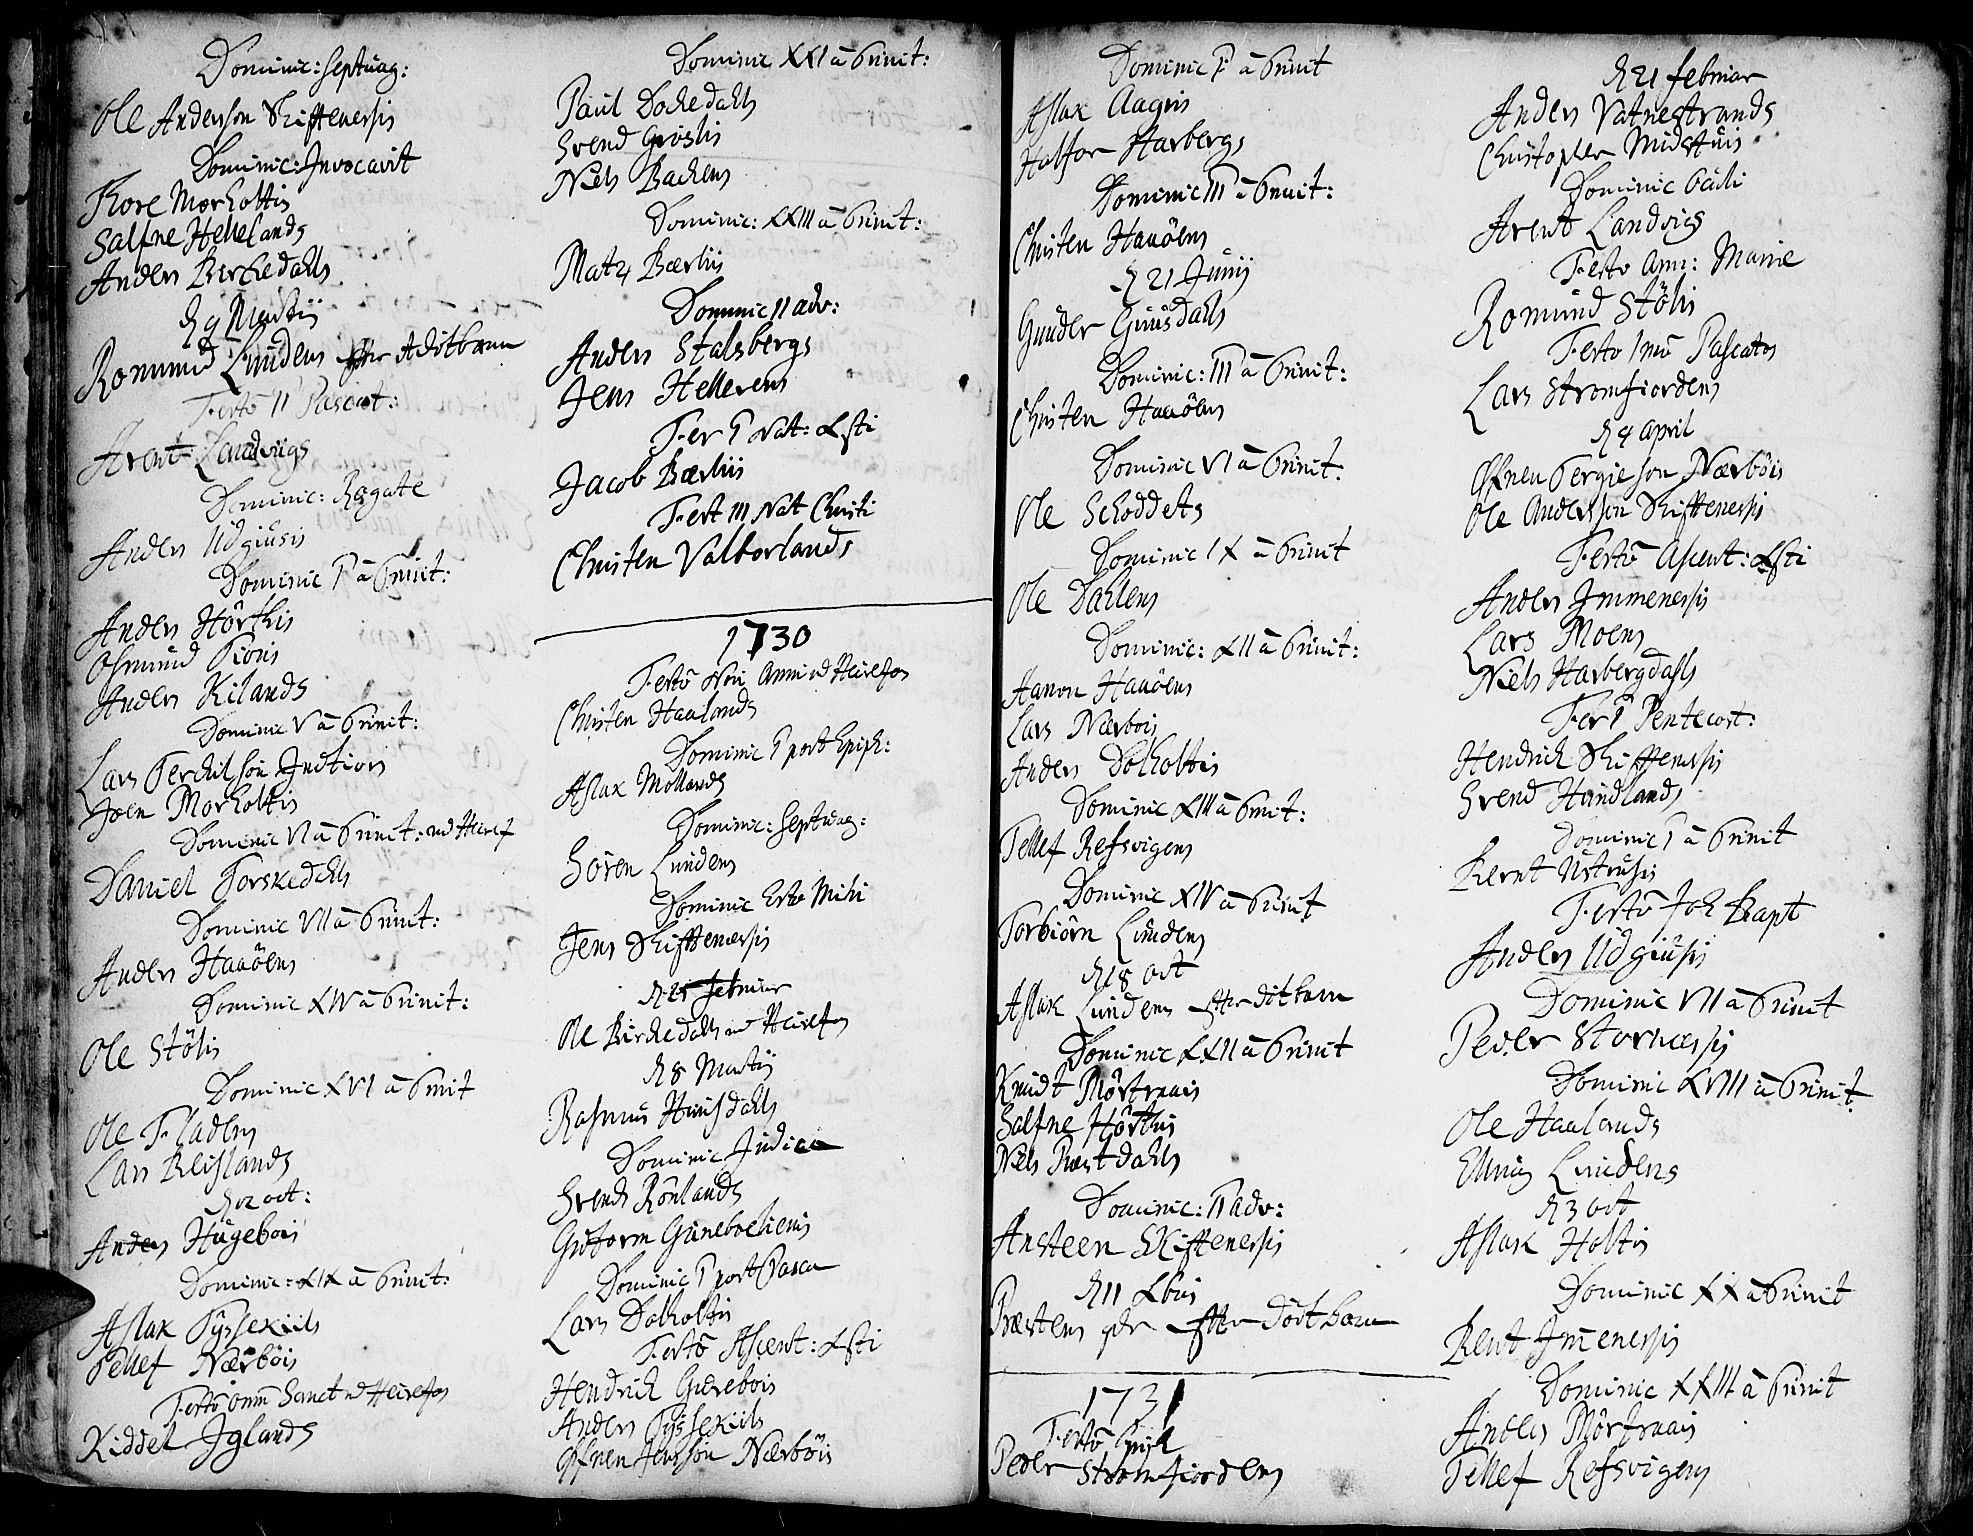 Dominic: septuag:
Ole Anderson Skiftenersis
Dominic: Invocavit
Thore Morholtis
Salfne Hellelands
Anders Birchedahls
d 9 Martij
Romund Lundens efter ditbarn
Festo II Pascat:
Arent Landvigs
Dominic: Rogate
Anders Udgiusis
Dominic T a Trinit:
Anders Hörthis
Osmund Tions
Anders Kilands
Dominic V a Trinit:
Lars Terchilson Indtiors
Joen Morholtis
Dominic VI a Trinit: ved Heiref
Daniel Torskedahls
Dominic VII a Trinit:
Anders Haaöens
Dominic XIV a Trinit:
Ole Stölis
Dominic XVI a Trinit
Ole Fladens
Lars Reislands
d 12 oct:
Anders Hugebois
Dominic: XIX a Trinit:
Aslak Tÿssekiils
Tellef Nærböis
Festo omn Sanct ved Heirefos
Kiddel Iglands
Dominic XXI a Trinit:
Paul Dochedahls
Svend Gröslis
Niels Bachens
Dominic: XXIII a Trinit:
Mats Bærliis
Dominic II adv:
Anders Stalsbergs
Jens Hellerens
Fer T Nat: Xsti
Jacob Bærliis
Fest III Nat Christi
Christen Valborlands
1730
Festo Novi Anni ved Heirefos
Christen Haalands
Dominic T post Epiph:
Aslak Mollands
Dominic: septuag:
Sören Lundens
Dominic Esto Mihi
Jens Skiftenæssis
d 25 februar
Ole Birchedahls ved Heirefos
d 8 Martij
Rasmus Huusdahls
Dominic Judica
Svend Rönlands
Gutorm Guneboeliens
Dominic T post Pasca
Lars Dolholtis
Festo Ascent: Xsti
Hendrich Gierebois
Anders Tÿssekiils
Ofnen Jensson Nærböis
Dominic T a Trinit
Aslak Aagris
Halfor Harbergs
Dominic III a Trinit:
Christen Haaöens
d 21 Junij
Gunder Guusdahls
Dominic: III a Trinit:
Christen Haaöens
Dominic VI a Trinit:
Ole Schoddets
Dominic IX a Trinit
Ole Dahlens
Dominic: XII a Trinit:
Aanon Haaöens
Lars Nærbois
Anders Dolholtis
Dominic XIII a Trinit:
Tellef Refsvigens
Dominic XIV a Trinit
Torbiörn Lundens
d 18 oct
Aslak Lundens efter ditbarn
Dominic XXII a Trinit
Knudt Mörfraais
Salfne Hörthis
Niels Præstdahls
Dominic: II adv:
Ansteen Skiftenersis
d 11 Xbris
Præstens gdr efter dödt barn
1731
Festo Epiph
Peder Strömfiordens
d 21 februar
Anders Vatnestrands
Christopher Midthuus
Dominic Oculi
Arent Landvigs
Festo Ann: Mariæ
Romund Stölis
Festo 1mo Pascatos
Lars Stromfiordens
d 4 April
Ofnen Tergieson Nærböis
Ole Andersson Skiftenersis
Festo Ascent: Xsti
Anders Immenersis
Lars Moens
Niels Harbergdahls
Fer T Pentecost:
Hendrich Skiftenersis
Svend Hundlands
Dominic T a Trinit
Bernt Ustrusis
Festo Joh Bapt
Anders Udgiusis
Dominic VII a Trinit
Peder Stornæssis
Dominic XVIII a Trinit
Ole Haalands
Elling Lundens
d 3 oct
Aslak Holtis
Dominic XX a Trinit
Bent Imenersis
Dominic XXIII a Trinit
Anders Mörfraais
Tellef Refsvigens